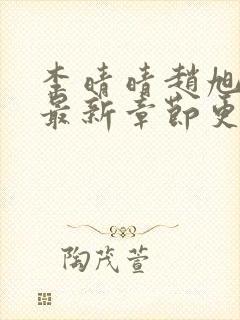 李晴晴趙旭
最新章節更
陶茂萱